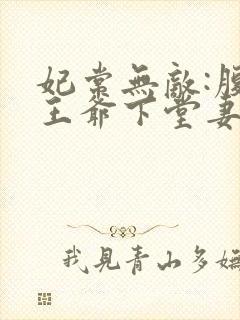 妃常無敵:腹
王爺下堂妻
我見青山多嫵